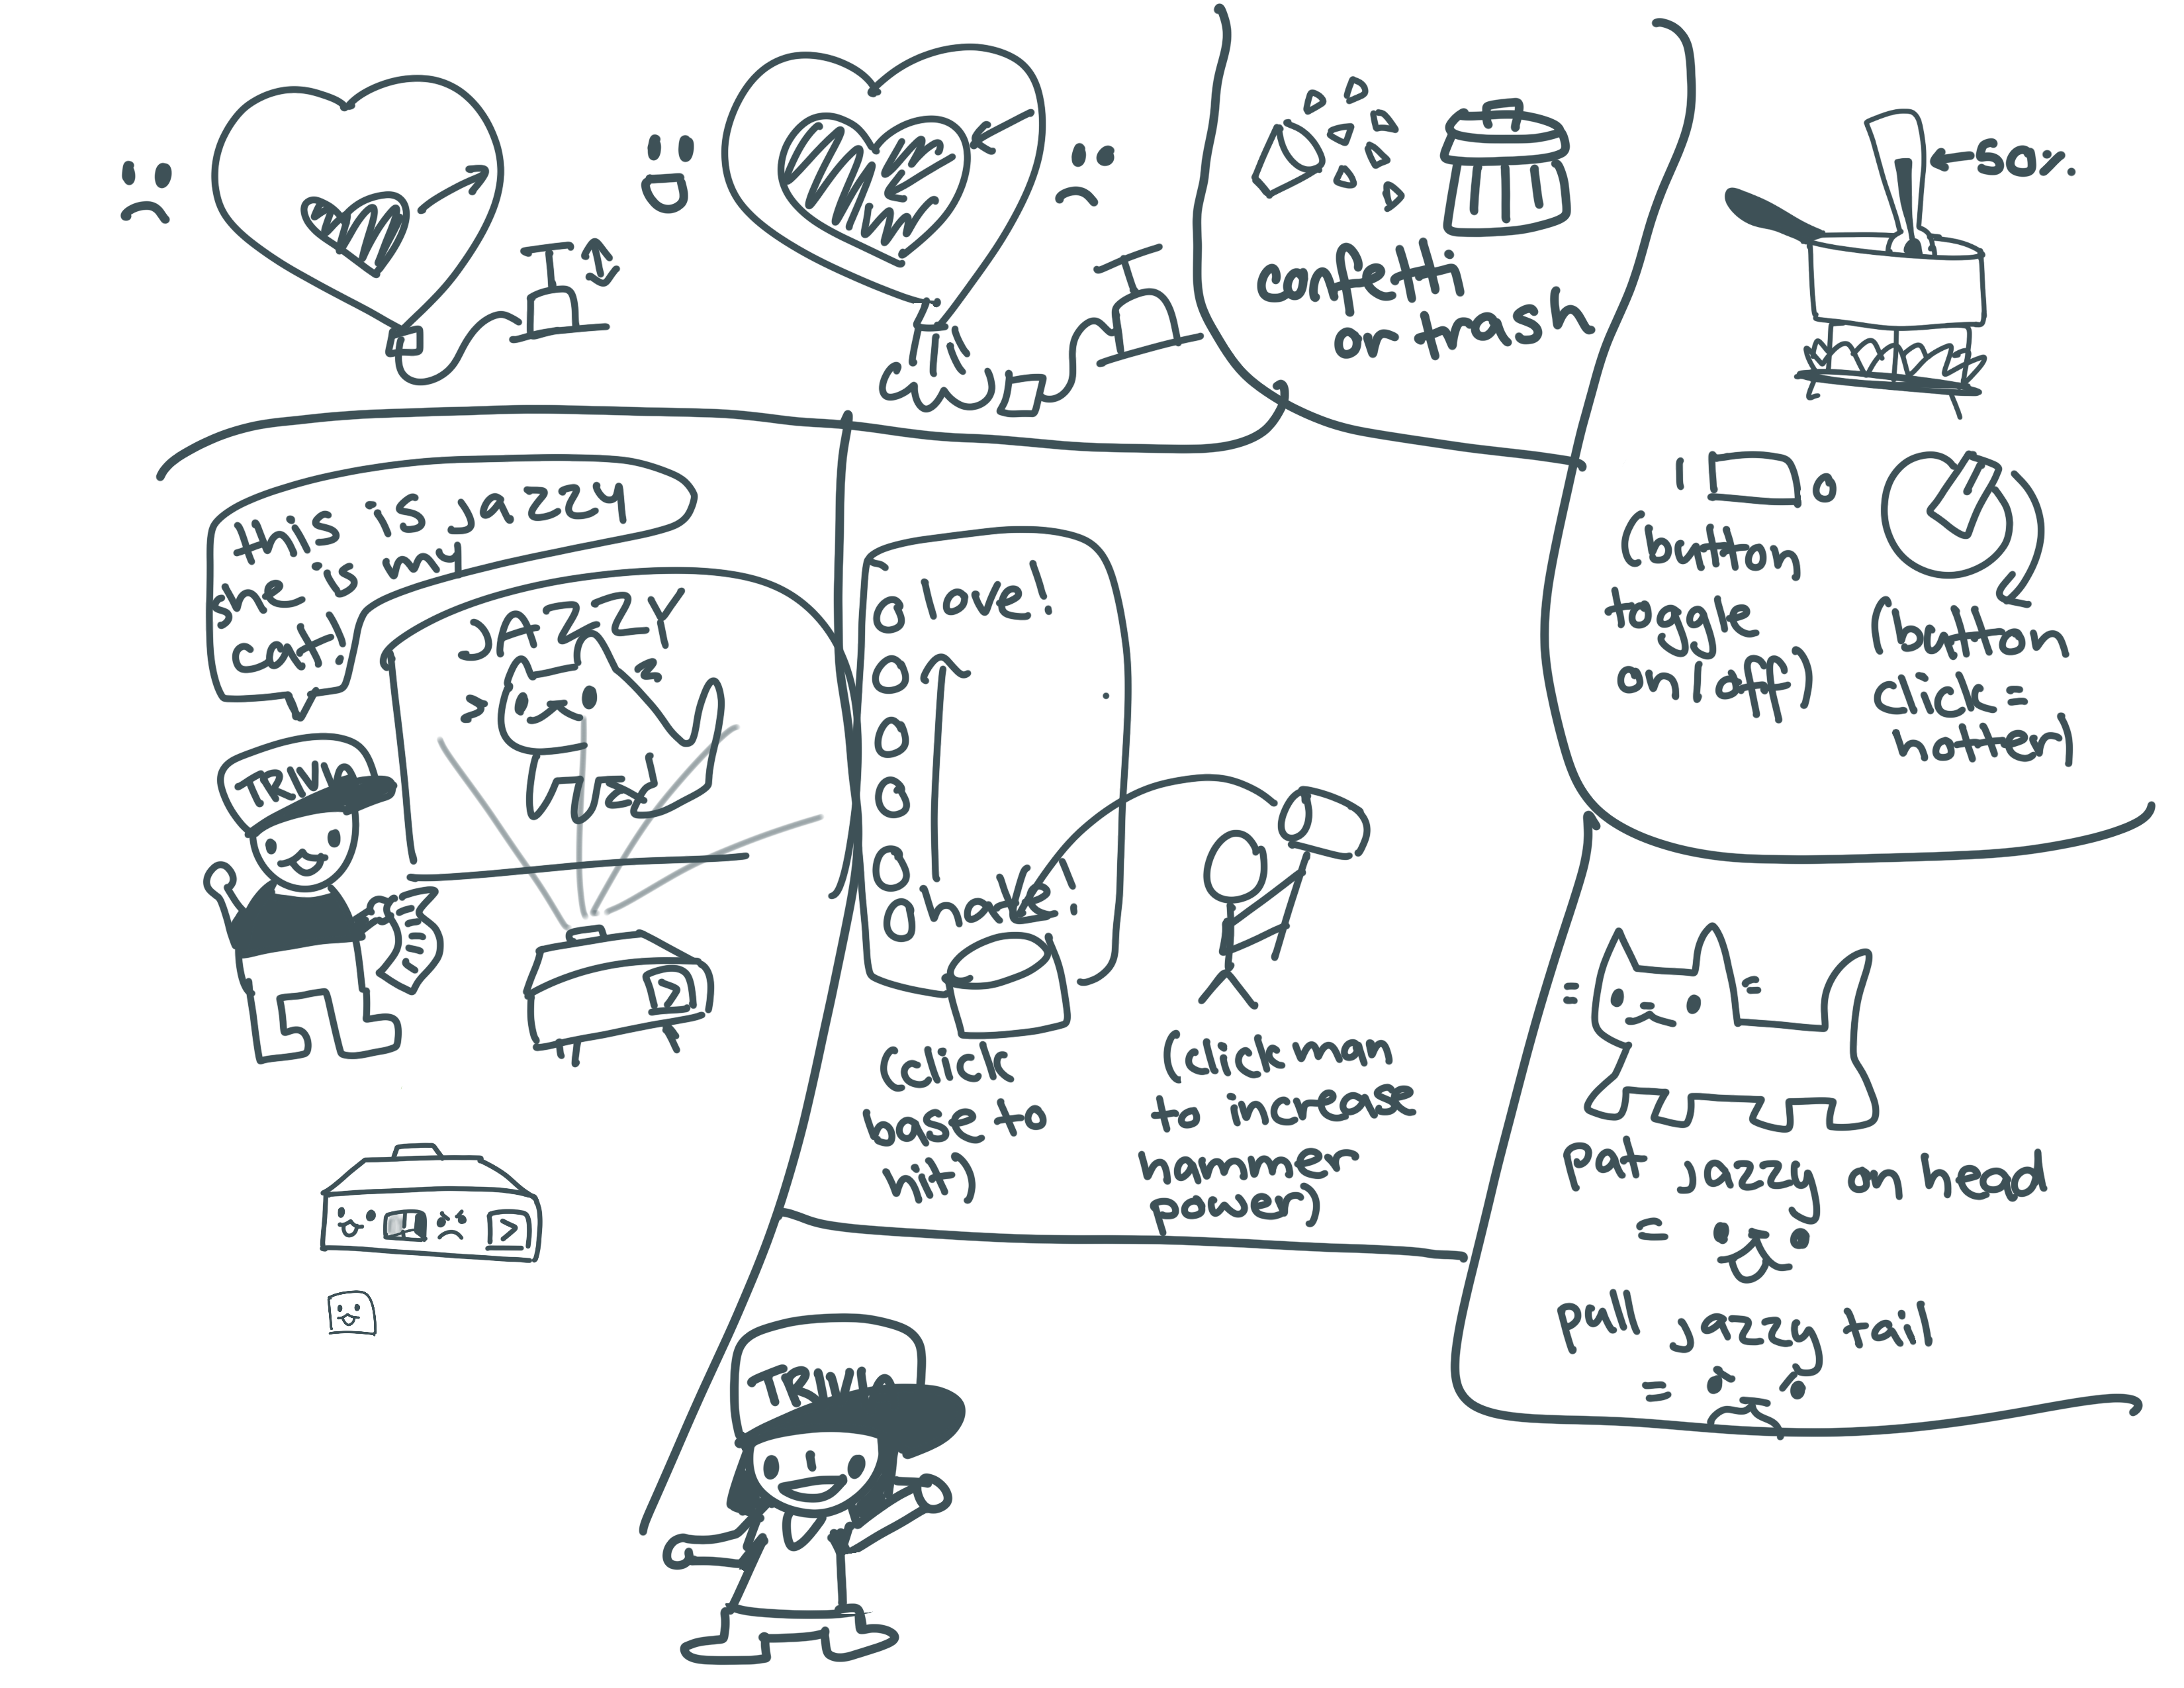 confetti
or trash
←50%.
1 0
(button
toggle
on/off)
(button
click =
hotter)
this is jazzy
she is my
cat!
JAZZY
TRIVIA
love!
hate!
(click
base to
hit)
(click man
to increase
hammer
power)
pat jazzy on head
=
pull jazzy tail
=
TRIVIA